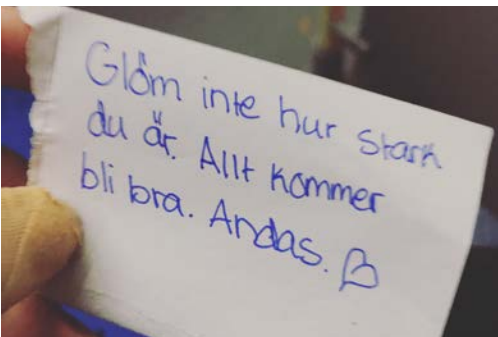 Glöm inte hur stark
du är. Allt kommer
bli bra. Andas. ♡